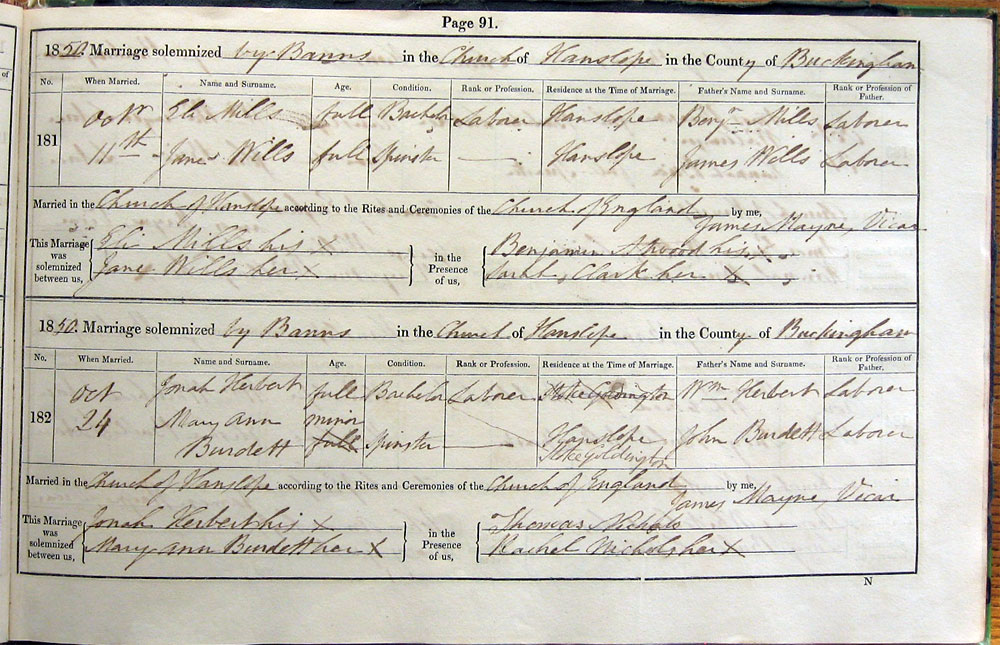 Page 91.
1850. Marriage solemnized by Banns in the Church of Hanslope in the County of Buckingham
No. When Married. Name and Surname. Age. Condition. Rank or Profession. Residence at the Time of Marriage. Father's Name and Surname. Rank or Profession of Father.
181 Octr 11th Eli Mills full Bachelor Laborer Hanslope Benjn Mills Laborer
Jane Wills full Spinster — Hanslope James Wills Laborer
Married in the Church of Hanslope according to the Rites and Ceremonies of the Church of England by me,
James Mayne, Vicar
This Marriage was solemnized between us, Eli Mills his X
Jane Wills her X
in the Presence of us, Benjamin his X
Sarah Clark her X
1850. Marriage solemnized by Banns in the Church of Hanslope in the County of Buckingham
No. When Married. Name and Surname. Age. Condition. Rank or Profession. Residence at the Time of Marriage. Father's Name and Surname. Rank or Profession of Father.
182 Oct 24 Jonah Herbert full Bachelor Laborer Stoke Goldington Wm Herbert Laborer
Mary Ann Burdett minor full Spinster — Hanslope Stoke Goldington John Burdett Laborer
Married in the Church of Hanslope according to the Rites and Ceremonies of the Church of England by me,
James Mayne Vicar
This Marriage was solemnized between us, Jonah Herbert his X
Mary Ann Burdett her X
in the Presence of us, Thomas Nichols
Rachel Nichols her X
N